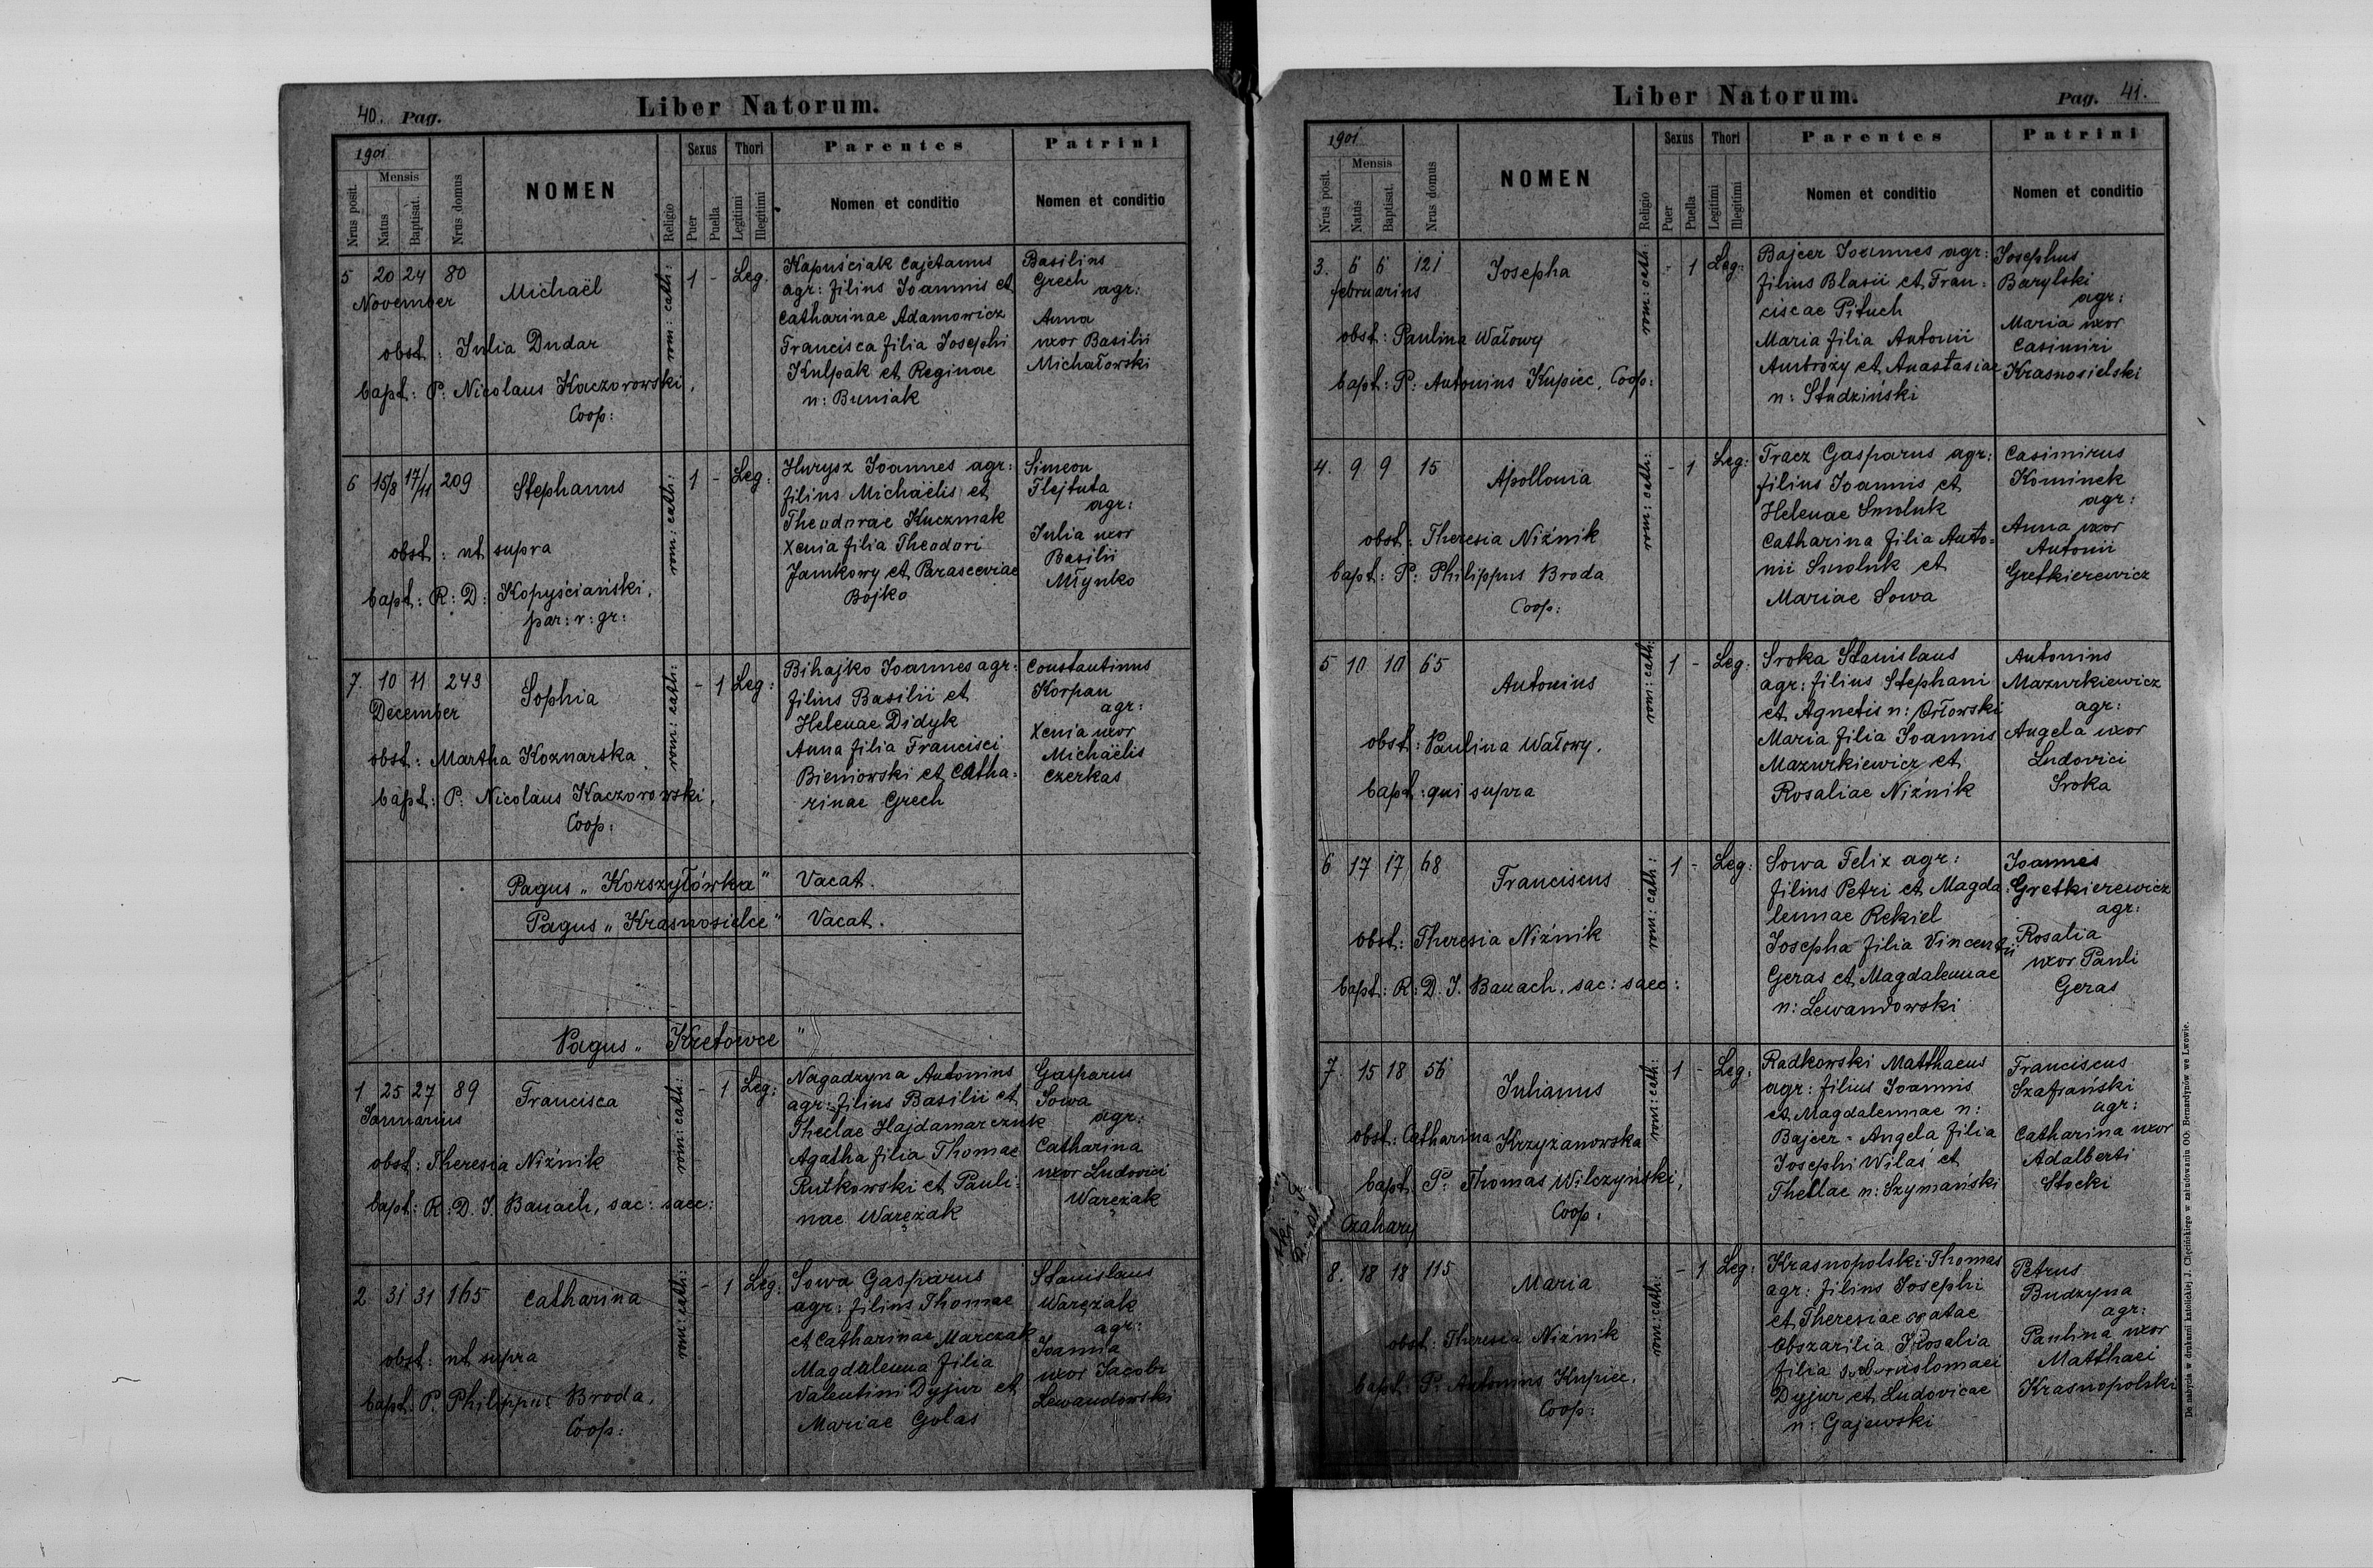 40. Pag.
Liber Natorum.
1901
Nrus posit.
Mensis
Natus
Baptisat.
Nrus domus
NOMEN
Religio
Sexus
Puer
Puella
Thori
Legitimi
Illegitimi
Parentes
Nomen et conditio
Patrini
Nomen et conditio
5 20 24 80
November
Michaël
rom: cath:
1 - Leg.
obst: Julia Dudar
bapt: P. Nicolaus Kaczorowski,
Coop:
Kapuściak Cajetanus
agr: filius Joannis et
Catharinae Adamowicz
Francisca filia Josephi
Kulpak et Reginae
n: Buniak
Basilius
Grech
agr:
Anna
uxor Basilii
Michałowski
6 15/8 17/11 209
Stephanus
rom: cath:
1 - Leg:
obst: ut supra
bapt: R: D: Kopyściański,
par: r: gr:
Hurysz Joannes agr:
filius Michaëlis et
Theodorae Kuczmak
Xenia filia Theodori
Jamkowy et Parasceviae
Bojko
Simeon
Flejtuta
agr:
Julia uxor
Basilii
Młynko
7. 10 11 243
December
Sophia
rom: cath:
- 1 Leg:
obst: Martha Koznarska
bapt: P: Nicolaus Kaczorowski,
Coop:
Bihajko Joannes agr:
filius Basilii et
Helenae Didyk
Anna filia Francisci
Bieniowski et Catha-
rinae Grech
Constantinus
Korpan
agr:
Xenia uxor
Michaëlis
Czerkas
Pagus „Korszyłówka" Vacat.
Pagus „Krasnosielce" Vacat.
Pagus „Kretowce"
1 25 27 89
Januarius
Francisca
rom: cath:
- 1 Leg:
obst: Theresia Niźnik
bapt: R: D. J. Banach, sac: saec:
Nagadzyna Antonius
agr: filius Basilii et
Theclae Hajdamarczuk
Agatha filia Thomae
Rutkowski et Pauli-
nae Warężak
Gasparus
Sowa
agr:
Catharina
uxor Ludovici
Warężak
2 31 31 165
Catharina
rom: cath:
- 1 Leg:
obst: ut supra
bapt: P. Philippus Broda,
Coop:
Sowa Gasparus
agr: filius Thomae
et Catharinae Marczak
Magdalenna filia
Valentini Dyjur et
Mariae Golas
Stanislaus
Warężak
agr:
Joanna
uxor Jacobi
Lewandowski
Liber Natorum.
Pag. 41.
1901
Nrus posit.
Mensis
Natus
Baptisat.
Nrus domus
NOMEN
Religio
Sexus
Puer
Puella
Thori
Legitimi
Illegitimi
Parentes
Nomen et conditio
Patrini
Nomen et conditio
3. 6 6 121
februarius
Josepha
rom: cath:
- 1 Leg:
obst: Paulina Wałowy
bapt: P: Antonius Kupiec, Coop:
Bajcer Joannes agr:
filius Blasii et Fran-
ciscae Pituch
Maria filia Antonii
Ambroży et Anastasiae
n: Studziński
Josephus
Barylski
agr:
Maria uxor
Casimiri
Krasnosielski
4. 9 9 15
Apollonia
rom: cath:
- 1 Leg:
obst: Theresia Niźnik
bapt: P: Philippus Broda
Coop:
Tracz Gasparus agr:
filius Joannis et
Helenae Smoluk
Catharina filia Anto-
nii Smoluk et
Mariae Sowa
Casimirus
Kominek
agr:
Anna uxor
Antonii
Gretkierewicz
5 10 10 65
Antonius
rom: cath:
1 - Leg:
obst: Paulina Wałowy.
bapt: qui supra
Sroka Stanislaus
agr: filius Stephani
et Agnetis n: Orłowski
Maria filia Joannis
Mazurkiewicz et
Rosaliae Niźnik
Antonius
Mazurkiewicz
agr:
Angela uxor
Ludovici
Sroka
6 17 17 68
Franciscus
rom: cath:
1 - Leg:
obst: Theresia Niźnik
bapt: R: D. J. Banach, sac: saec:
Sowa Felix agr:
filius Petri et Magda
lennae Rekiel
Josepha filia Vincentii
Geras et Magdalennae
n: Lewandowski
Joannes
Gretkierewicz
agr:
Rosalia
uxor Pauli
Geras
7. 15 18 56
Julianus
rom: cath:
1 - Leg:
obst: Catharina Krzyżanowska
bapt: P: Thomas Wilczyński,
Coop:
Radkowski Matthaeus
agr: filius Joannis
et Magdalennae n:
Bajcer - Angela filia
Josephi Wilaś et
Theclae n: Szymański
Franciscus
Szafrański
agr:
Catharina uxor
Adalberti
Stocki
Czahary
8. 18 18 115
Maria
rom: cath:
- 1 Leg:
obst: Theresia Niźnik
bapt: P: Antonius Kupiec,
Coop:
Krasnopolski Thomas
agr: filius Josephi
et Theresiae natae
Rosalia
filia
Dyjur et Ludovicae
n: Gajewski
Petrus
Budzyna
agr:
Paulina uxor
Matthaei
Krasnopolski
Do nabycia w drukarni katolickiej J. Chęcińskiego w zabudowaniu OO. Bernardynów we Lwowie.